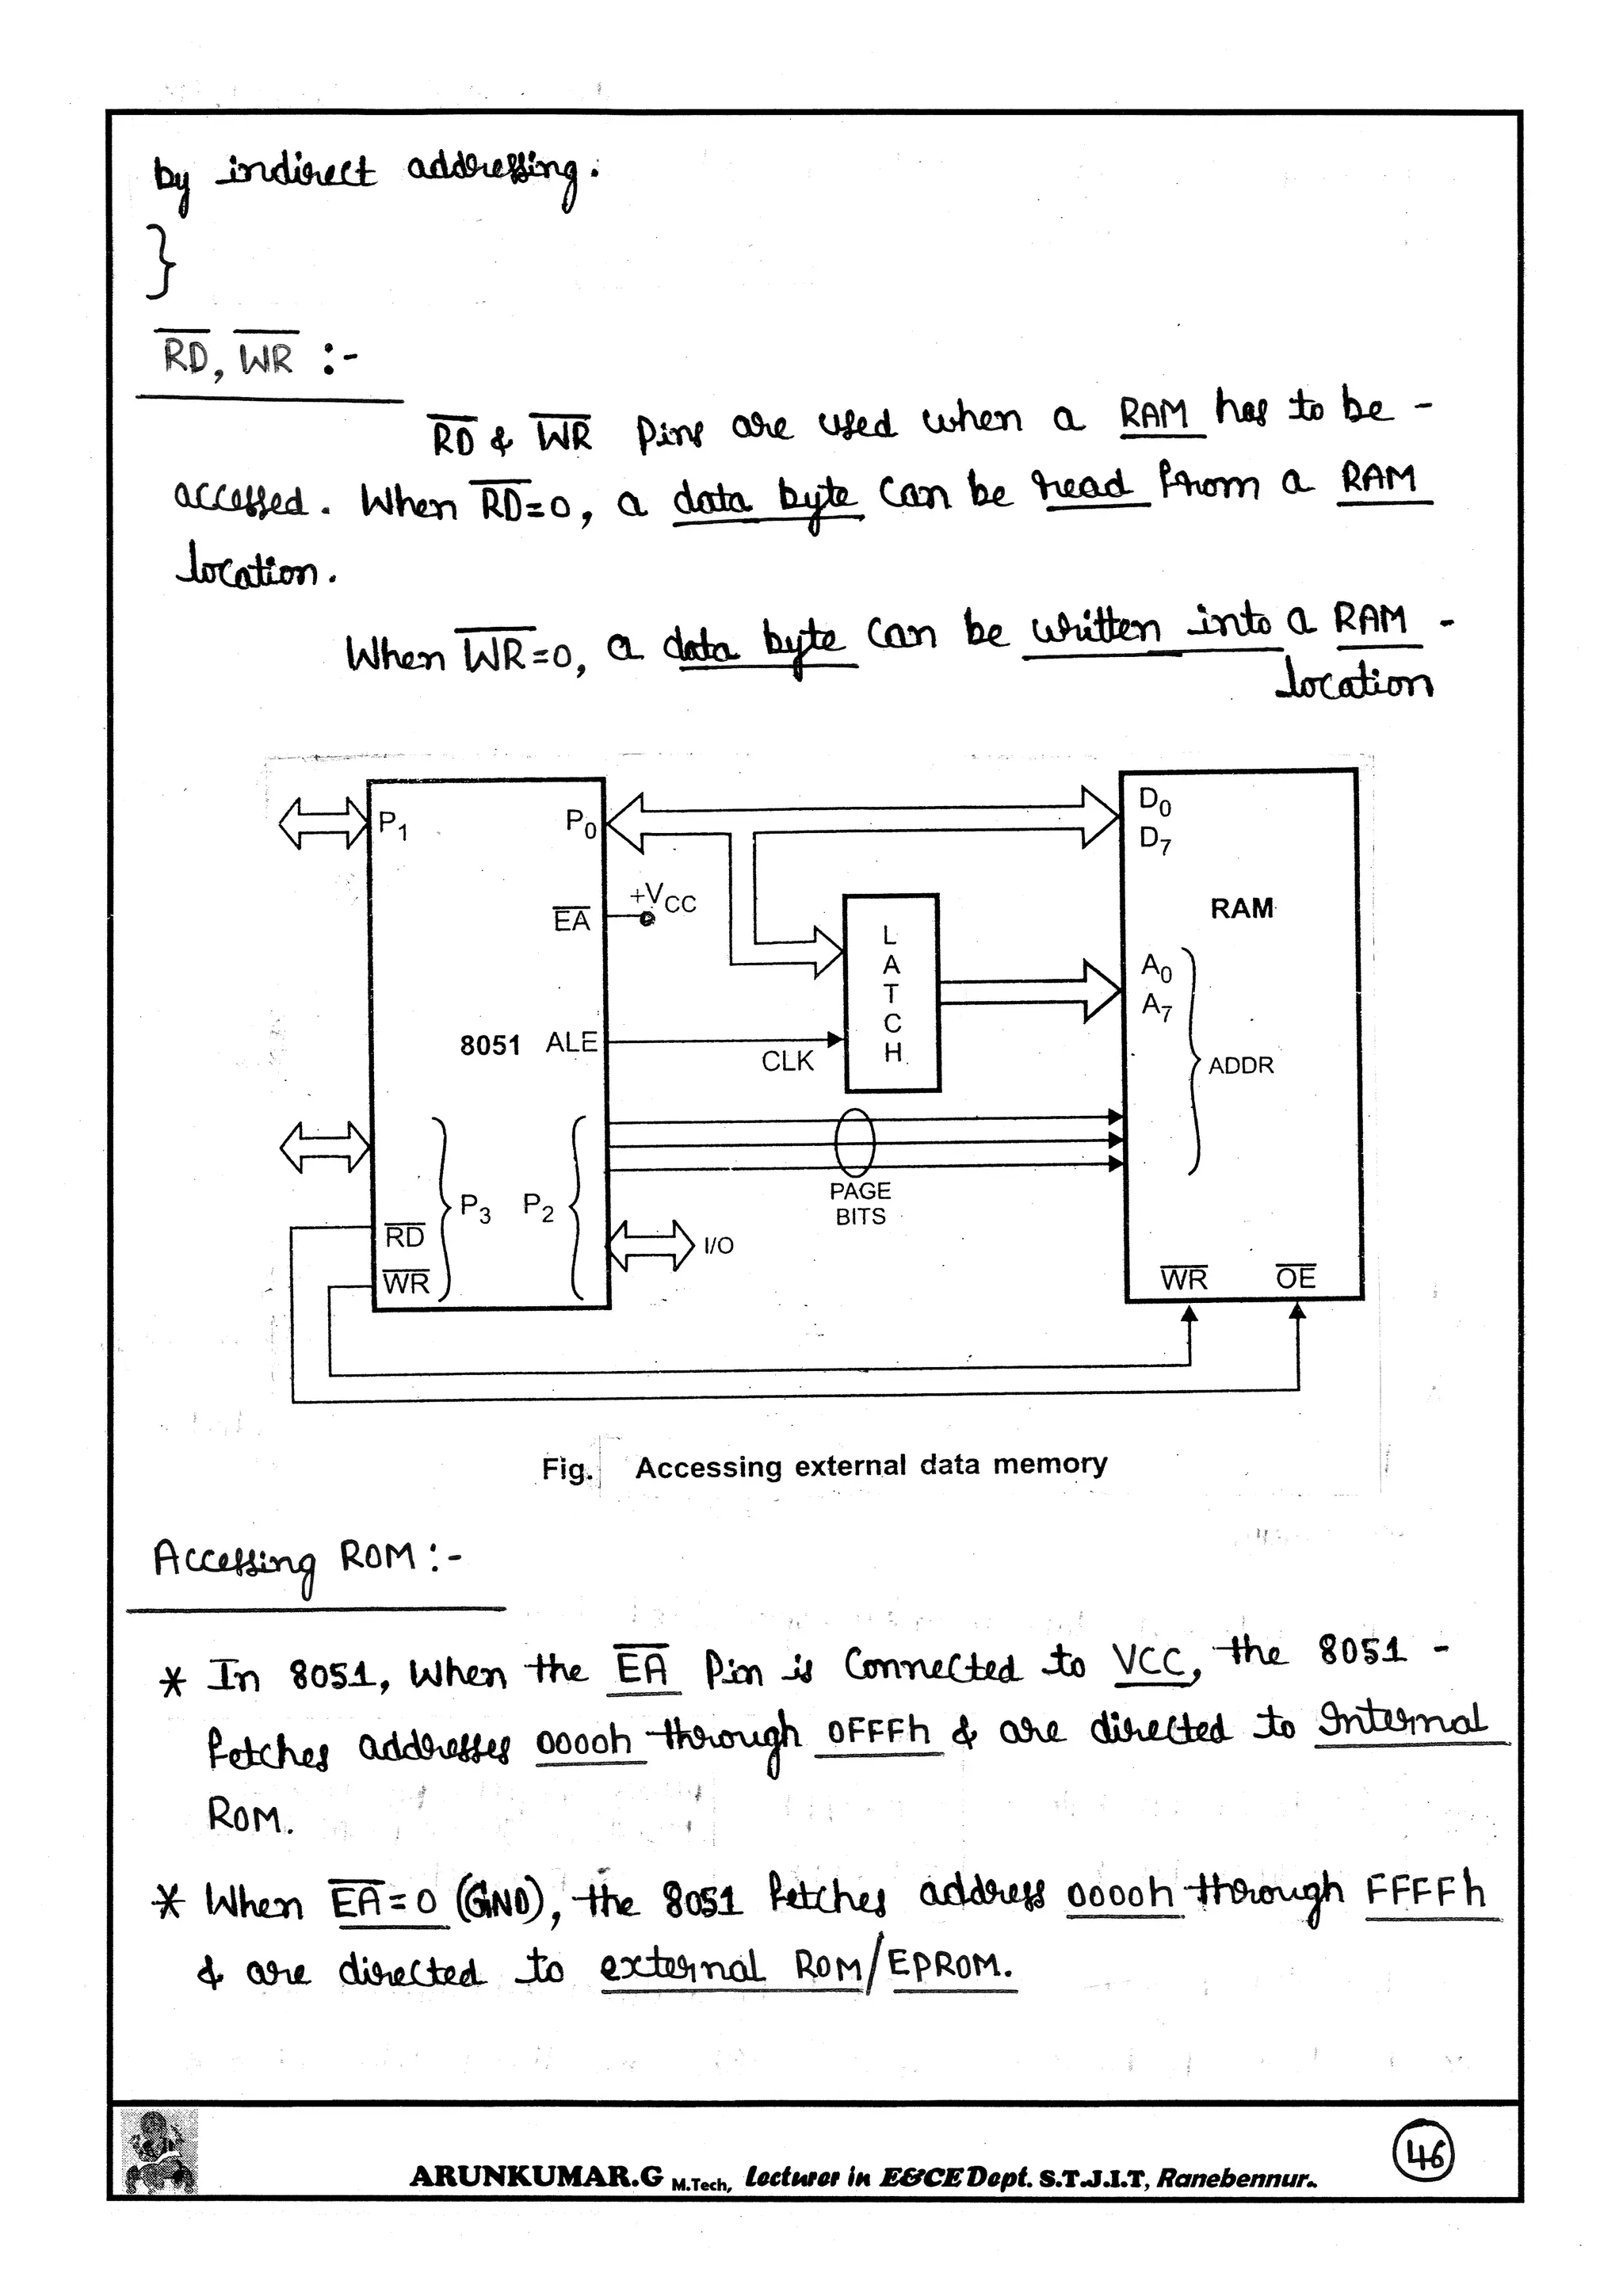 by indirect addressing.
}
R̅D̅, W̅R̅ :-
R̅D̅ & W̅R̅ Pins are used when a RAM has to be -
accessed. When R̅D̅=0, a data byte can be read from a RAM
location.
When W̅R̅=0, a data byte can be written into a RAM -
location
P1
P0
D0
D7
+VCC
E̅A̅
RAM
LATCH
A0
A7
8051 ALE
CLK
ADDR
PAGE
BITS
P3 P2
R̅D̅
I/O
W̅R̅
W̅R̅ O̅E̅
Fig. Accessing external data memory
Accessing ROM :-
* In 8051, When the E̅A̅ Pin is Connected to VCC, the 8051 -
fetches addresses 0000h through 0FFFh & are directed to Internal
ROM.
* When E̅A̅=0 (GND), the 8051 fetches address 0000h through FFFFh
& are directed to external ROM/EPROM.
46
ARUNKUMAR.G M.Tech, Lecturer in E&CE Dept. S.T.J.I.T, Ranebennur.